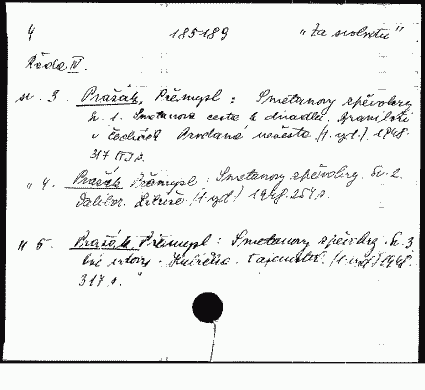 4 185189 "Za svobodu"
Řada IV.
sv. 3. Pražák, Přemysl: Smetanovy zpěvohry
Sv. 1. Smetanova cesta k divadlu. Braniboři
v Čechách. Prodaná nevěsta. (1. vyd.) 1948.
317 s.
" 4. Pražák Přemysl: Smetanovy zpěvohry. Sv. 2.
Dalibor. Libuše. (1. vyd.) 1948. 254 s.
" 5. Pražák Přemysl: Smetanovy zpěvohry. Sv. 3.
Dvě vdovy. Hubička. Tajemství. (1. vyd.) 1948.
317 s.